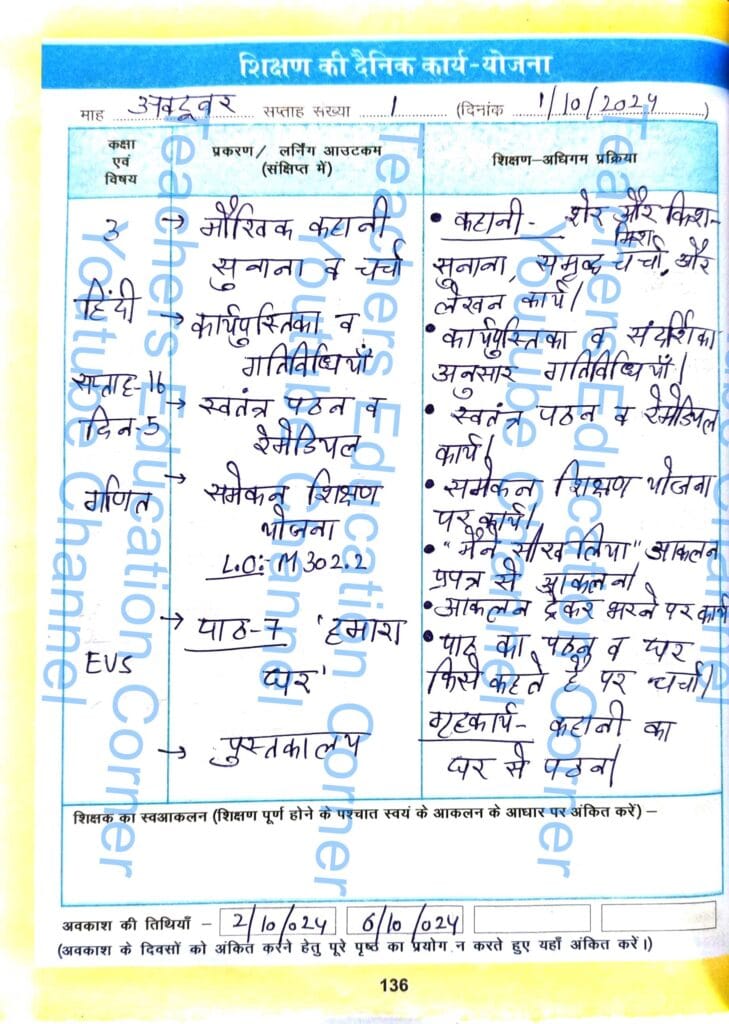 शिक्षण की दैनिक कार्य-योजना
माह अक्टूबर सप्ताह संख्या 1 (दिनांक 1/10/2024)
कक्षा एवं विषय
प्रकरण/ लर्निंग आउटकम (संक्षिप्त में)
शिक्षण-अधिगम प्रक्रिया
3
हिंदी
सप्ताह-16
दिन-5
गणित
EVS
→ मौखिक कहानी
सुनाना व चर्चा
→ कार्यपुस्तिका व
गतिविधियाँ
→ स्वतंत्र पठन व
रेमेडियल
→ समेकन शिक्षण
योजना
L.O:- M 302.2
→ पाठ-7 'हमारा
घर'
→ पुस्तकालय
• कहानी- शेर और किश-
मिश
सुनाना, समृद्ध चर्चा, और
लेखन कार्य।
• कार्यपुस्तिका व संदर्शिका
अनुसार गतिविधियाँ।
• स्वतंत्र पठन व रेमेडियल
कार्य।
• समेकन शिक्षण योजना
पर कार्य।
• "मैंने सीख लिया" आकलन
प्रपत्र से आकलन।
• आकलन ट्रेकर भरने पर कार्य
• पाठ का पठन व घर
किसे कहते है पर चर्चा।
गृहकार्य- कहानी का
घर से पठन।
शिक्षक का स्वआकलन (शिक्षण पूर्ण होने के पश्चात स्वयं के आकलन के आधार पर अंकित करें) –
अवकाश की तिथियाँ – 2/10/024 6/10/024
(अवकाश के दिवसों को अंकित करने हेतु पूरे पृष्ठ का प्रयोग न करते हुए यहाँ अंकित करें।)
136
Teachers Education Corner
Youtube Channel
Teachers Education Corner
Youtube Channel
Teachers Education Corner
Youtube Channel